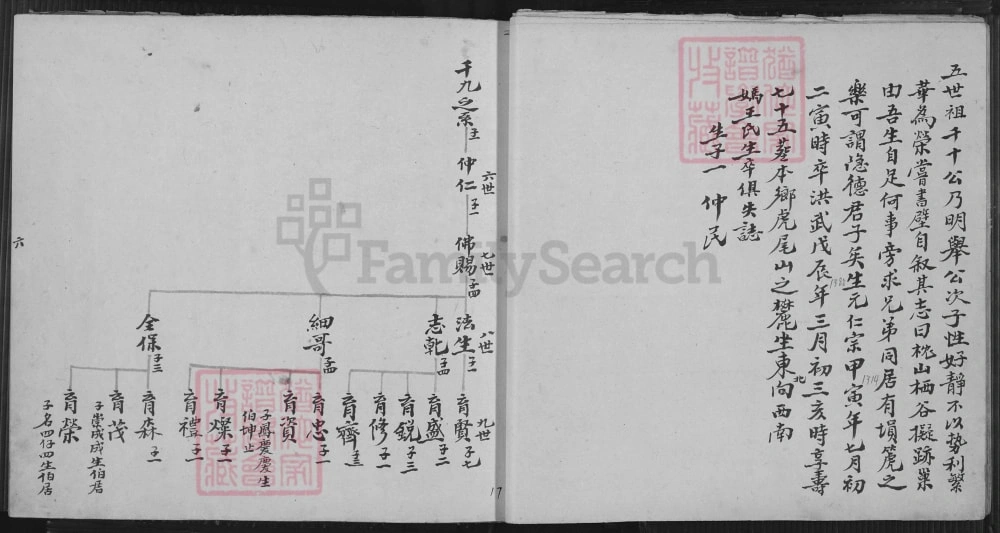 五世祖千十公乃明舉公次子性好靜不以勢利繁
華為榮嘗書壁自叙其志曰枕山栖谷擬跡巢
由吾生自足何事旁求兄弟同居有塤箎之
樂可謂隐德君子矣生元仁宗甲寅年七月初
1314
二寅時卒洪武戊辰年三月初三亥時享壽
1388
七十五葬本鄉虎尾山之麓坐東向西南
北
媽王氏生卒俱失誌
生子一 仲民
千九之系
仲仁 子一
六世
佛賜 子四
七世
法生 子一
八世
志乾 子四
細哥 子四
全保 子三
育賢 子七
九世
育盛 子二
育銳 子三
育修 子一
育齊 子三
育忠 子一
育資
子鳳慶慶生
伯坤止
育燦 子一
育禮 子一
育森 子一
育茂
子崇成成生伯居
育榮
子名四仔四生伯居
六
17
FamilySearch